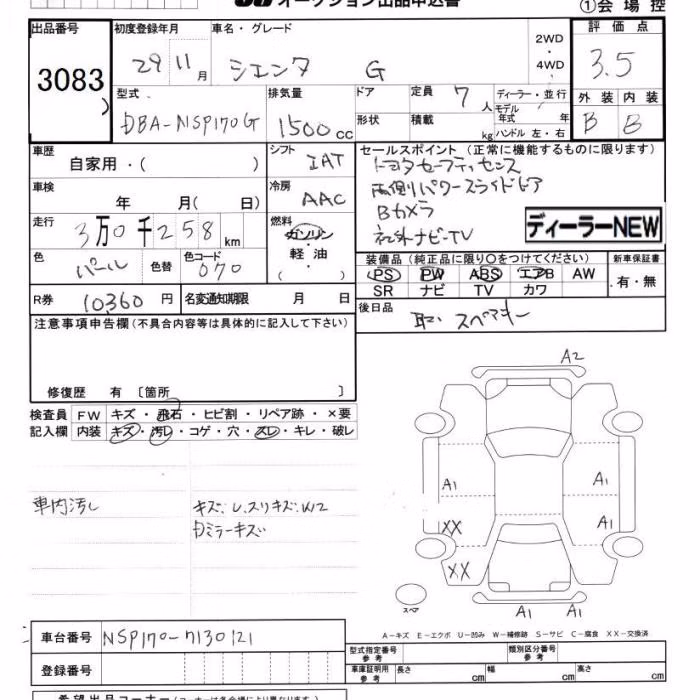 オークション出品申込書
①会場控
出品番号 初度登録年月 車名・グレード 評価点
3083 29 11月 シエンタ G 2WD・4WD 3.5
型式 排気量 ドア 定員 7人 ディーラー・並行 外装 内装
DBA-NSP170G 1500cc 形状 積載 kg モデル年式 年 B B
ハンドル 左・右
車歴 シフト セールスポイント(正常に機能するものに限ります)
自家用・( ) IAT トヨタセーフティセンス
車検 冷房 両側パワースライドドア
年 月( 日) AAC Bカメラ
走行 燃料 社外ナビ-TV
3万0千258km ガソリン・軽油・( ) ディーラーNEW
色 色替 色コード 装備品(純正品に限り○をつけてください) 新車保証書
パール 070 PS PW ABS エアB AW 有・無
SR ナビ TV カワ
R券 10360円 名変通知期限 月 日 後日品
取. スペアキー
注意事項申告欄(不具合内容等は具体的に記入して下さい)
修復歴 有 〔箇所 〕
検査員 FW キズ・飛石・ヒビ割・リペア跡・×要
記入欄 内装 キズ・汚レ・コゲ・穴・スレ・キレ・破レ
車内汚レ
キズ、
ミラーキズ
A2
A1 A1
XX A1
XX
A1 A1
スペア
A-キズ E-エクボ U-凹み W-補修跡 S-サビ C-腐食 XX-交換済
車台番号 NSP170-7130121
登録番号
型式指定番号 参考 類別区分番号 参考
車庫証明用 参考 長さ cm 幅 cm 高さ cm
希望出品コーナー